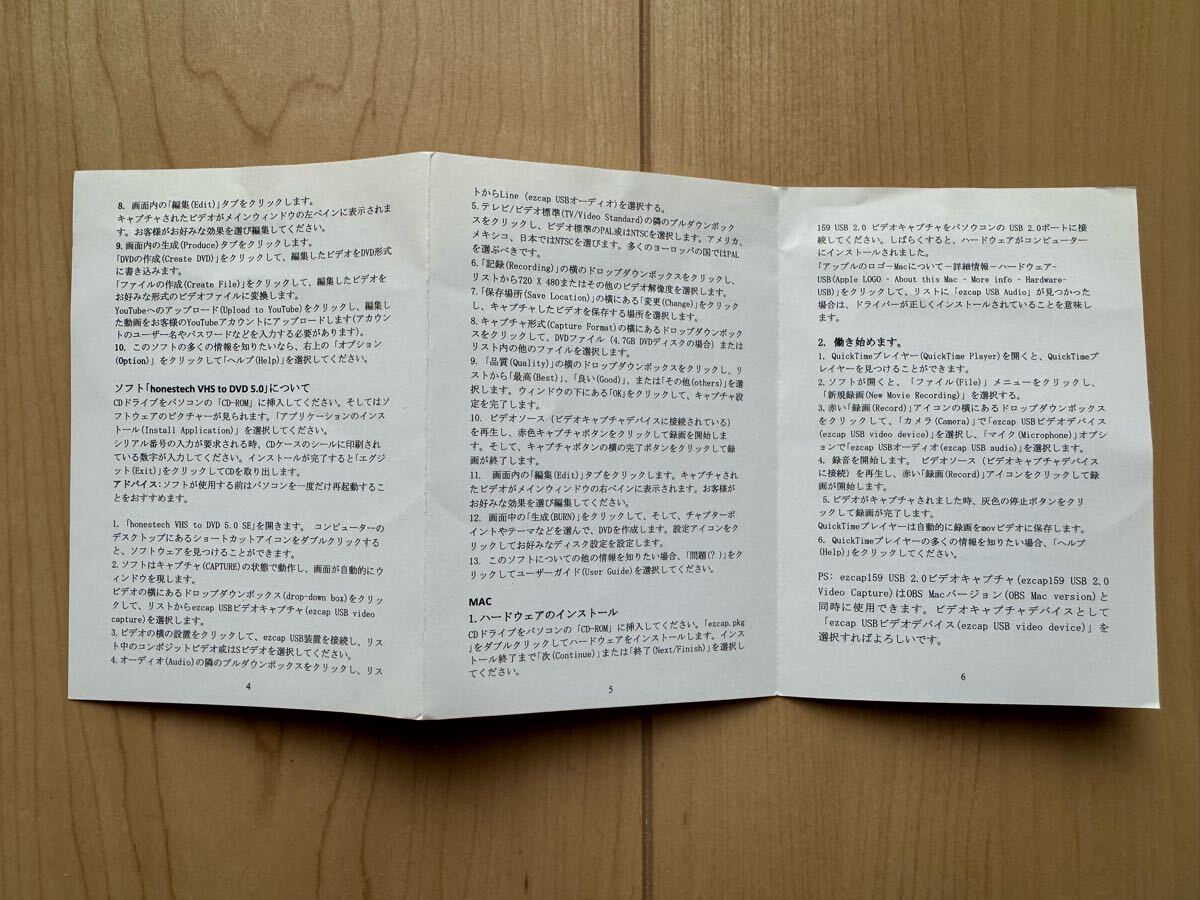 8. 画面内の「編集(Edit)」タブをクリックします。
キャプチャされたビデオがメインウィンドウの左ペインに表示されま
す。お客様がお好みな効果を選び編集してください。
9. 画面内の生成(Produce)タブをクリックします。
「DVDの作成(Create DVD)」をクリックして、編集したビデオをDVD形式
に書き込みます。
「ファイルの作成(Create File)」をクリックして、編集したビデオを
お好みな形式のビデオファイルに変換します。
YouTubeへのアップロード(Upload to YouTube)をクリックし、編集し
た動画をお客様のYouTubeアカウントにアップロードします(アカウン
トのユーザー名やパスワードなどを入力する必要があります)。
10. このソフトの多くの情報を知りたいなら、右上の「オプション
(Option)」をクリックして「ヘルプ(Help)」を選択してください。
ソフト「honestech VHS to DVD 5.0」について
CDドライブをパソコンの「CD-ROM」に挿入してください。そしてはソ
フトウェアのピクチャーが見られます。「アプリケーションのインス
トール(Install Application)」を選択してください。
シリアル番号の入力が要求される時、CDケースのシールに印刷され
ている数字が入力してください。インストールが完了すると「エグジ
ット(Exit)」をクリックしてCDを取り出します。
アドバイス:ソフトが使用する前はパソコンを一度だけ再起動するこ
とをおすすめます。
1. 「honestech VHS to DVD 5.0 SE」を開きます。 コンピューターの
デスクトップにあるショートカットアイコンをダブルクリックする
と、ソフトウェアを見つけることができます。
2. ソフトはキャプチャ(CAPTURE)の状態で動作し、画面が自動的にウ
ィンドウを現します。
ビデオの横にあるドロップダウンボックス(drop-down box)をクリッ
クして、リストからezcap USBビデオキャプチャ(ezcap USB video
capture)を選択します。
3. ビデオの横の設置をクリックして、ezcap USB装置を接続し、リス
ト中のコンポジットビデオ或はSビデオを選択してください。
4. オーディオ(Audio)の隣のプルダウンボックスをクリックし、リス
4
トからLine (ezcap USBオーディオ)を選択する。
5. テレビ/ビデオ標準(TV/Video Standard)の隣のプルダウンボック
スをクリックし、ビデオ標準のPAL或はNTSCを選択します。アメリカ、
メキシコ、日本ではNTSCを選びます。多くのヨーロッパの国ではPAL
を選ぶべきです。
6. 「記録(Recording)」の横のドロップダウンボックスをクリックし、
リストから720 X 480またはその他のビデオ解像度を選択します。
7. 「保存場所(Save Location)」の横にある「変更(Change)」をクリック
し、キャプチャしたビデオを保存する場所を選択します。
8. キャプチャ形式(Capture Format)の横にあるドロップダウンボック
スをクリックして、DVDファイル (4.7GB DVDディスクの場合) または
リスト内の他のファイルを選択します。
9. 「品質(Quality)」の横のドロップダウンボックスをクリックし、リ
ストから「最高(Best)」、「良い(Good)」、または「その他(others)」を選
択します。ウィンドウの下にある「OK」をクリックして、キャプチャ設
定を完了します。
10. ビデオソース (ビデオキャプチャデバイスに接続されている)
を再生し、赤色キャプチャボタンをクリックして録画を開始しま
す。そして、キャプチャボタンの横の完了ボタンをクリックして録
画が終了します。
11. 画面内の「編集(Edit)」タブをクリックします。キャプチャされ
たビデオがメインウィンドウの右ペインに表示されます。お客様が
お好みな効果を選び編集してください。
12. 画面中の「生成(BURN)」をクリックして、そして、チャプターポ
イントやテーマなどを選んで、DVDを作成します。設定アイコンをク
リックしてお好みなディスク設定を設定します。
13. このソフトについての他の情報を知りたい場合、「問題(？)」をク
リックしてユーザーガイド(User Guide)を選択してください。
MAC
1. ハードウェアのインストール
CDドライブをパソコンの「CD-ROM」に挿入してください。「ezcap.pkg
」をダブルクリックしてハードウェアをインストールします。インス
トール終了まで「次(Continue)」または「終了(Next/Finish)」を選択し
てください。
5
159 USB 2.0 ビデオキャプチャをパソウコンの USB 2.0ポートに接
続してください。しばらくすると、ハードウェアがコンピューター
にインストールされました。
「アップルのロゴ－Macについて－詳細情報－ハードウェア-
USB(Apple LOGO - About this Mac - More info - Hardware-
USB)」をクリックして、リストに「ezcap USB Audio」が見つかった
場合は、ドライバーが正しくインストールされていることを意味し
ます。
2. 働き始めます。
1. QuickTimeプレイヤー(QuickTime Player)を開くと、QuickTimeプ
レイヤーを見つけることができます。
2. ソフトが開くと、「ファイル(File)」メニューをクリックし、
「新規録画(New Movie Recording)」を選択する。
3. 赤い「録画(Record)」アイコンの横にあるドロップダウンボックス
をクリックして、「カメラ(Camera)」で「ezcap USBビデオデバイス
(ezcap USB video device)」を選択し、「マイク(Microphone)」オプシ
ョンで「ezcap USBオーディオ(ezcap USB audio)」を選択します。
4. 録音を開始します。 ビデオソース (ビデオキャプチャデバイス
に接続) を再生し、赤い「録画(Record)」アイコンをクリックして録
画が開始します。
5. ビデオがキャプチャされました時、灰色の停止ボタンをクリ
ックして録画が完了します。
QuickTimeプレイヤーは自動的に録画をmovビデオに保存します。
6. QuickTimeプレイヤーの多くの情報を知りたい場合、「ヘルプ
(Help)」をクリックしてください。
PS: ezcap159 USB 2.0ビデオキャプチャ(ezcap159 USB 2.0
Video Capture)はOBS Macバージョン(OBS Mac version)と
同時に使用できます。ビデオキャプチャデバイスとして
「ezcap USBビデオデバイス(ezcap USB video device)」を
選択すればよろしいです。
6